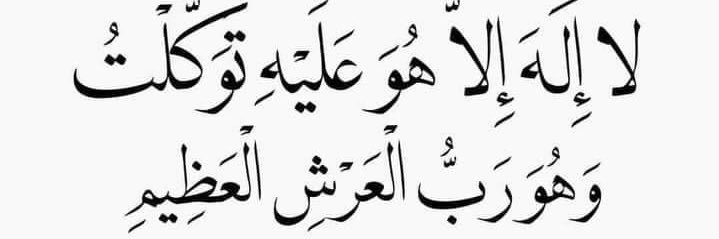 لا إِلَهَ إِلاَّ هُوَ عَلَيْهِ تَوَكَّلْتُ
وَهُوَ رَبُّ الْعَرْشِ الْعَظِيمِ